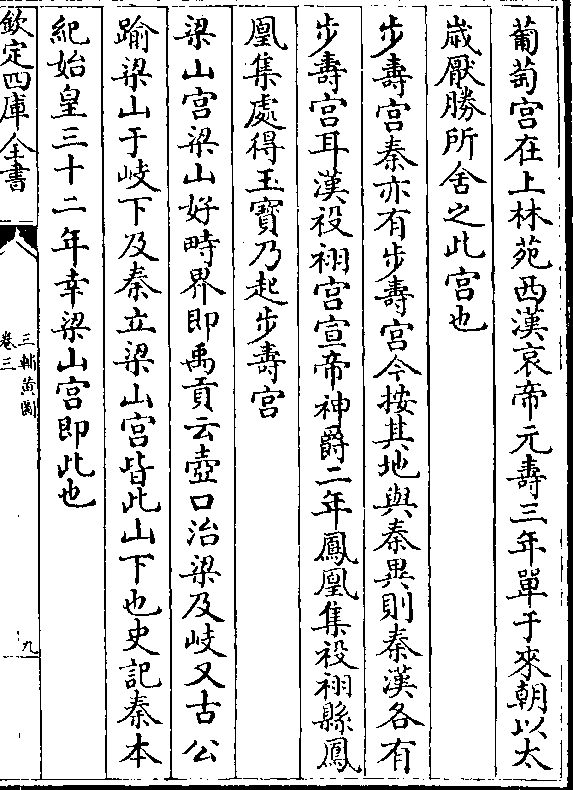 葡萄宫在上林苑西漢哀帝元壽三年單于來朝以太
嵗厭勝所舍之此宫也
步壽宫秦亦有步壽宫今按其地與秦異則秦漢各有
步壽宫耳漢祋祤宫宣帝神爵二年鳳凰集祋祤縣鳳
凰集處得玉寶乃起步壽宫
梁山宫梁山好畤界即禹貢云壺口治梁及岐又古公
踰梁山于岐下及秦立梁山宫皆此山下也史記秦本
紀始皇三十二年幸梁山宫即此也
欽定四庫全書
三輔黄圖
卷三
九